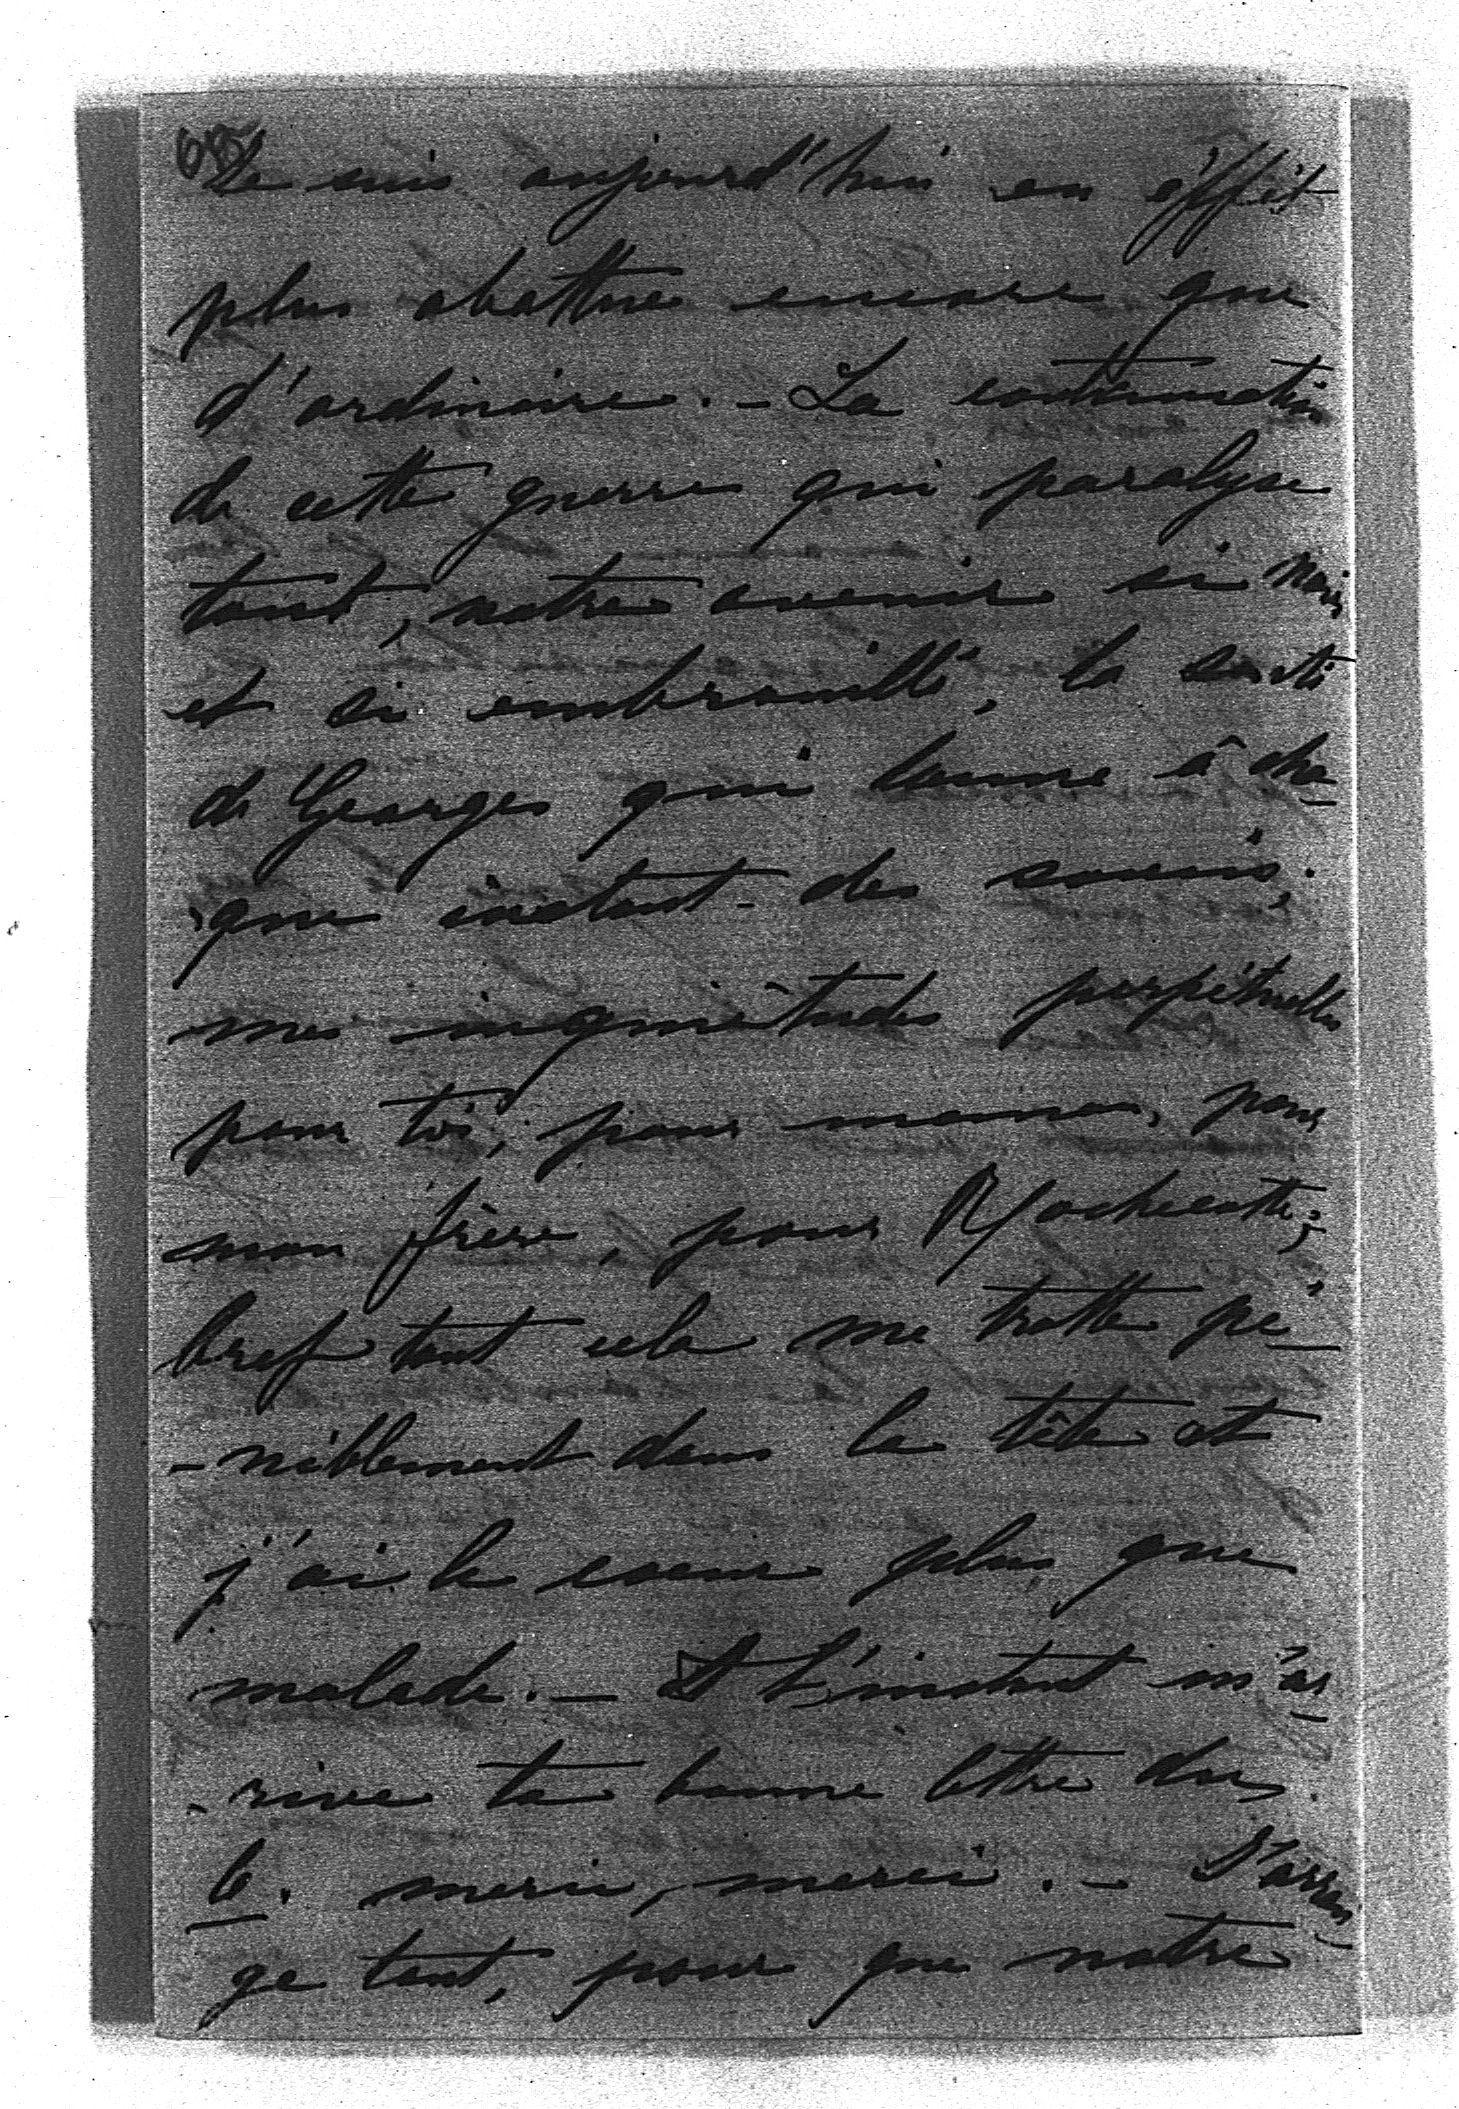 Je suis aujourd'hui en éffet
plus abattue encore que
d'ordinaire. – La continuation
de cette guerre qui paralyse
tout, notre avenir si noir
et si embrouillé, la santé
de Georges qui donne à cha-
que instant des soucis,
mes inquiétudes perpétuelles
pour toi, pour maman, pour
mon frère, pour Rochecotte;
bref tout cela me trotte pé-
-niblement dans la tête et
j'ai le coeur plus que
malade. – A l'instant m'ar-
-rive ta bonne lettre du
6. merci, merci. – J'arran-
ge tout, pour que notre